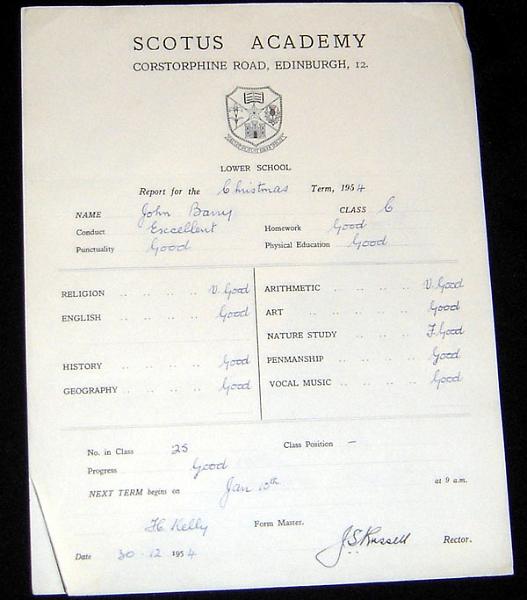 SCOTUS ACADEMY
CORSTORPHINE ROAD, EDINBURGH, 12.
LOWER SCHOOL
Report for the Christmas Term, 1954
NAME John Barry CLASS C
Conduct Excellent Homework Good
Punctuality Good Physical Education Good
RELIGION .. .. .. .. V. Good ARITHMETIC .. .. .. .. V. Good
ENGLISH .. .. .. .. Good ART .. .. .. .. Good
NATURE STUDY .. .. .. F. Good
HISTORY .. .. .. .. Good PENMANSHIP .. .. .. .. Good
GEOGRAPHY .. .. .. .. Good VOCAL MUSIC .. .. .. .. Good
No. in Class 25 Class Position –
Progress Good
NEXT TERM begins on Jan 10th at 9 a.m.
Kelly Form Master.
J.S. Russell Rector.
Date 30 - 12 1954